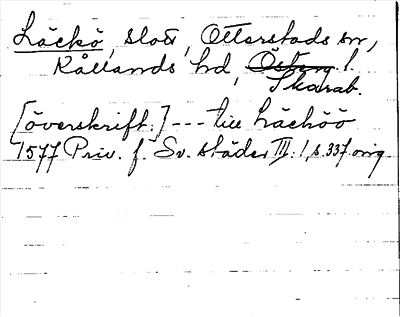 Läckö, slott, Otterstads sn,
Kållands hd, Österg. l.
Skarab.
[överskrift:] --- till Läcköö
1577 Priv. f. Sv. städer III: 1, s. 337 orig